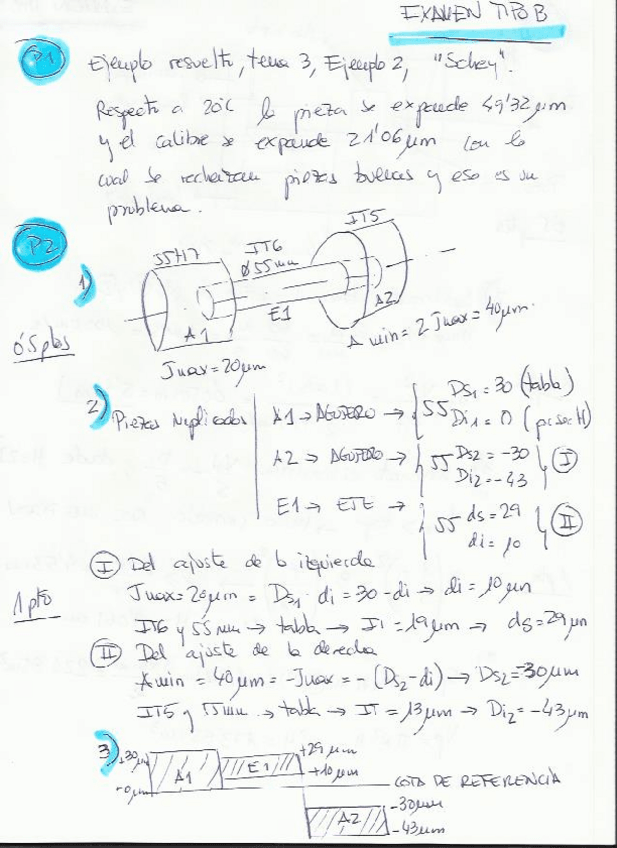 EXAMEN TIPO B
P1
Ejemplo resuelto, tema 3, Ejemplo 2, "Schey".
Respecto a 20ºC la pieza se expande 49'32 µm
y el calibre se expande 21'06 µm con lo
cual se rechazan piezas buenas y eso es un
problema.
P2
1)
0,5 ptos
55H7
IT6
Ø55mm
IT5
A1
E1
A2
Jmax = 20µm
Amin = 2 Jmax = 40µm.
2) Piezas implicadas
A1 → AGUJERO → 55 Ds1 = 30 (tabla)
Di1 = 0 (por ser H)
A2 → AGUJERO → 55 Ds2 = -30
Di2 = -43 I
E1 → EJE → 55 ds = 29
di = 10 II
I Del ajuste de la izquierda
1 pto
Jmax = 20µm = Ds1 - di = 30 - di → di = 10 µm
IT6 y 55mm → tabla → IT = 19µm → ds = 29µm
II Del ajuste de la derecha
Amin = 40µm = -Jmax = -(Ds2 - di) → Ds2 = -30µm
IT5 y 55mm → tabla → IT = 13µm → Di2 = -43µm
3) +30µm
A1
-0µm
E1
+29µm
+10µm
COTA DE REFERENCIA
A2
-30µm
-43µm